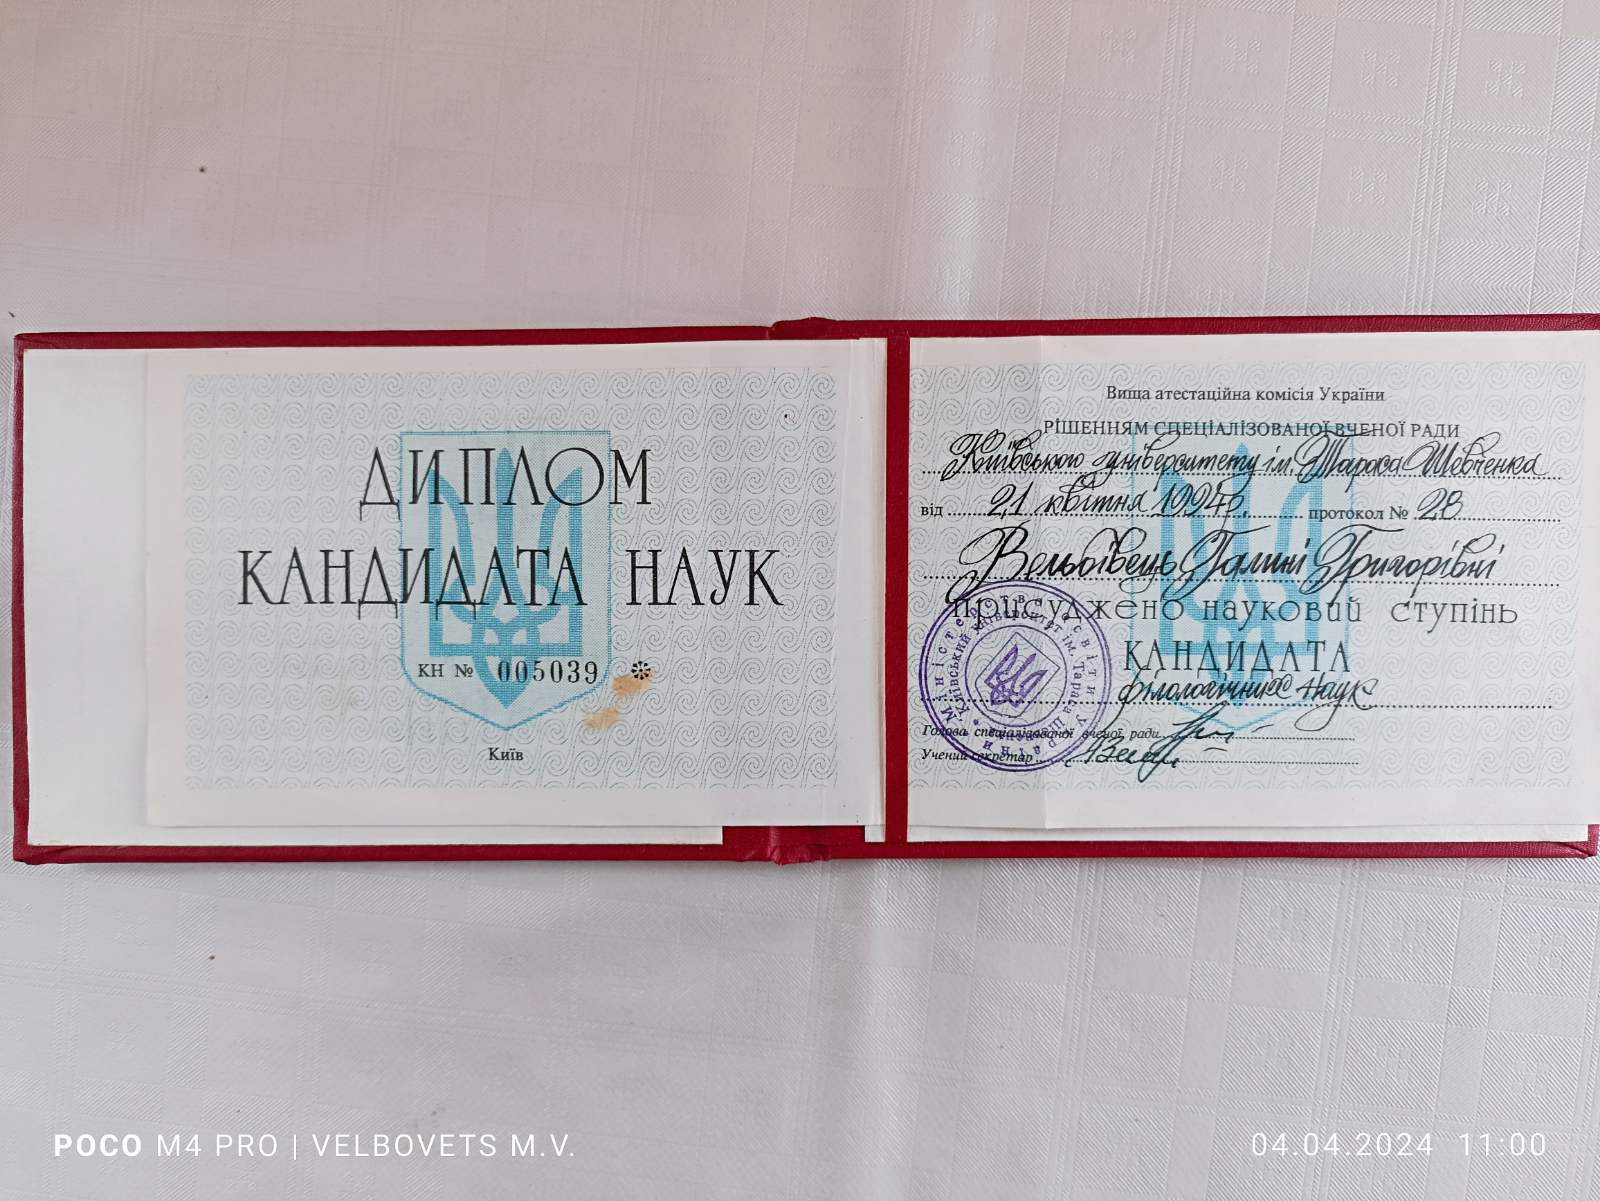 ДИПЛОМ
КАНДИДАТА НАУК
КН № 005039
Київ
Вища атестаційна комісія України
РІШЕННЯМ СПЕЦІАЛІЗОВАНОЇ ВЧЕНОЇ РАДИ
Київського університету ім. Тараса Шевченка
від 21 квітня 1994р. протокол № 28
Вельбівець Галині Григорівні
присуджено науковий ступінь
КАНДИДАТА
філологічних наук
Голова спеціалізованої вченої ради
Учений секретар
Міністерство освіти України
Київський університет ім. Тараса Шевченка
POCO M4 PRO | VELBOVETS M.V.
04.04.2024 11:00